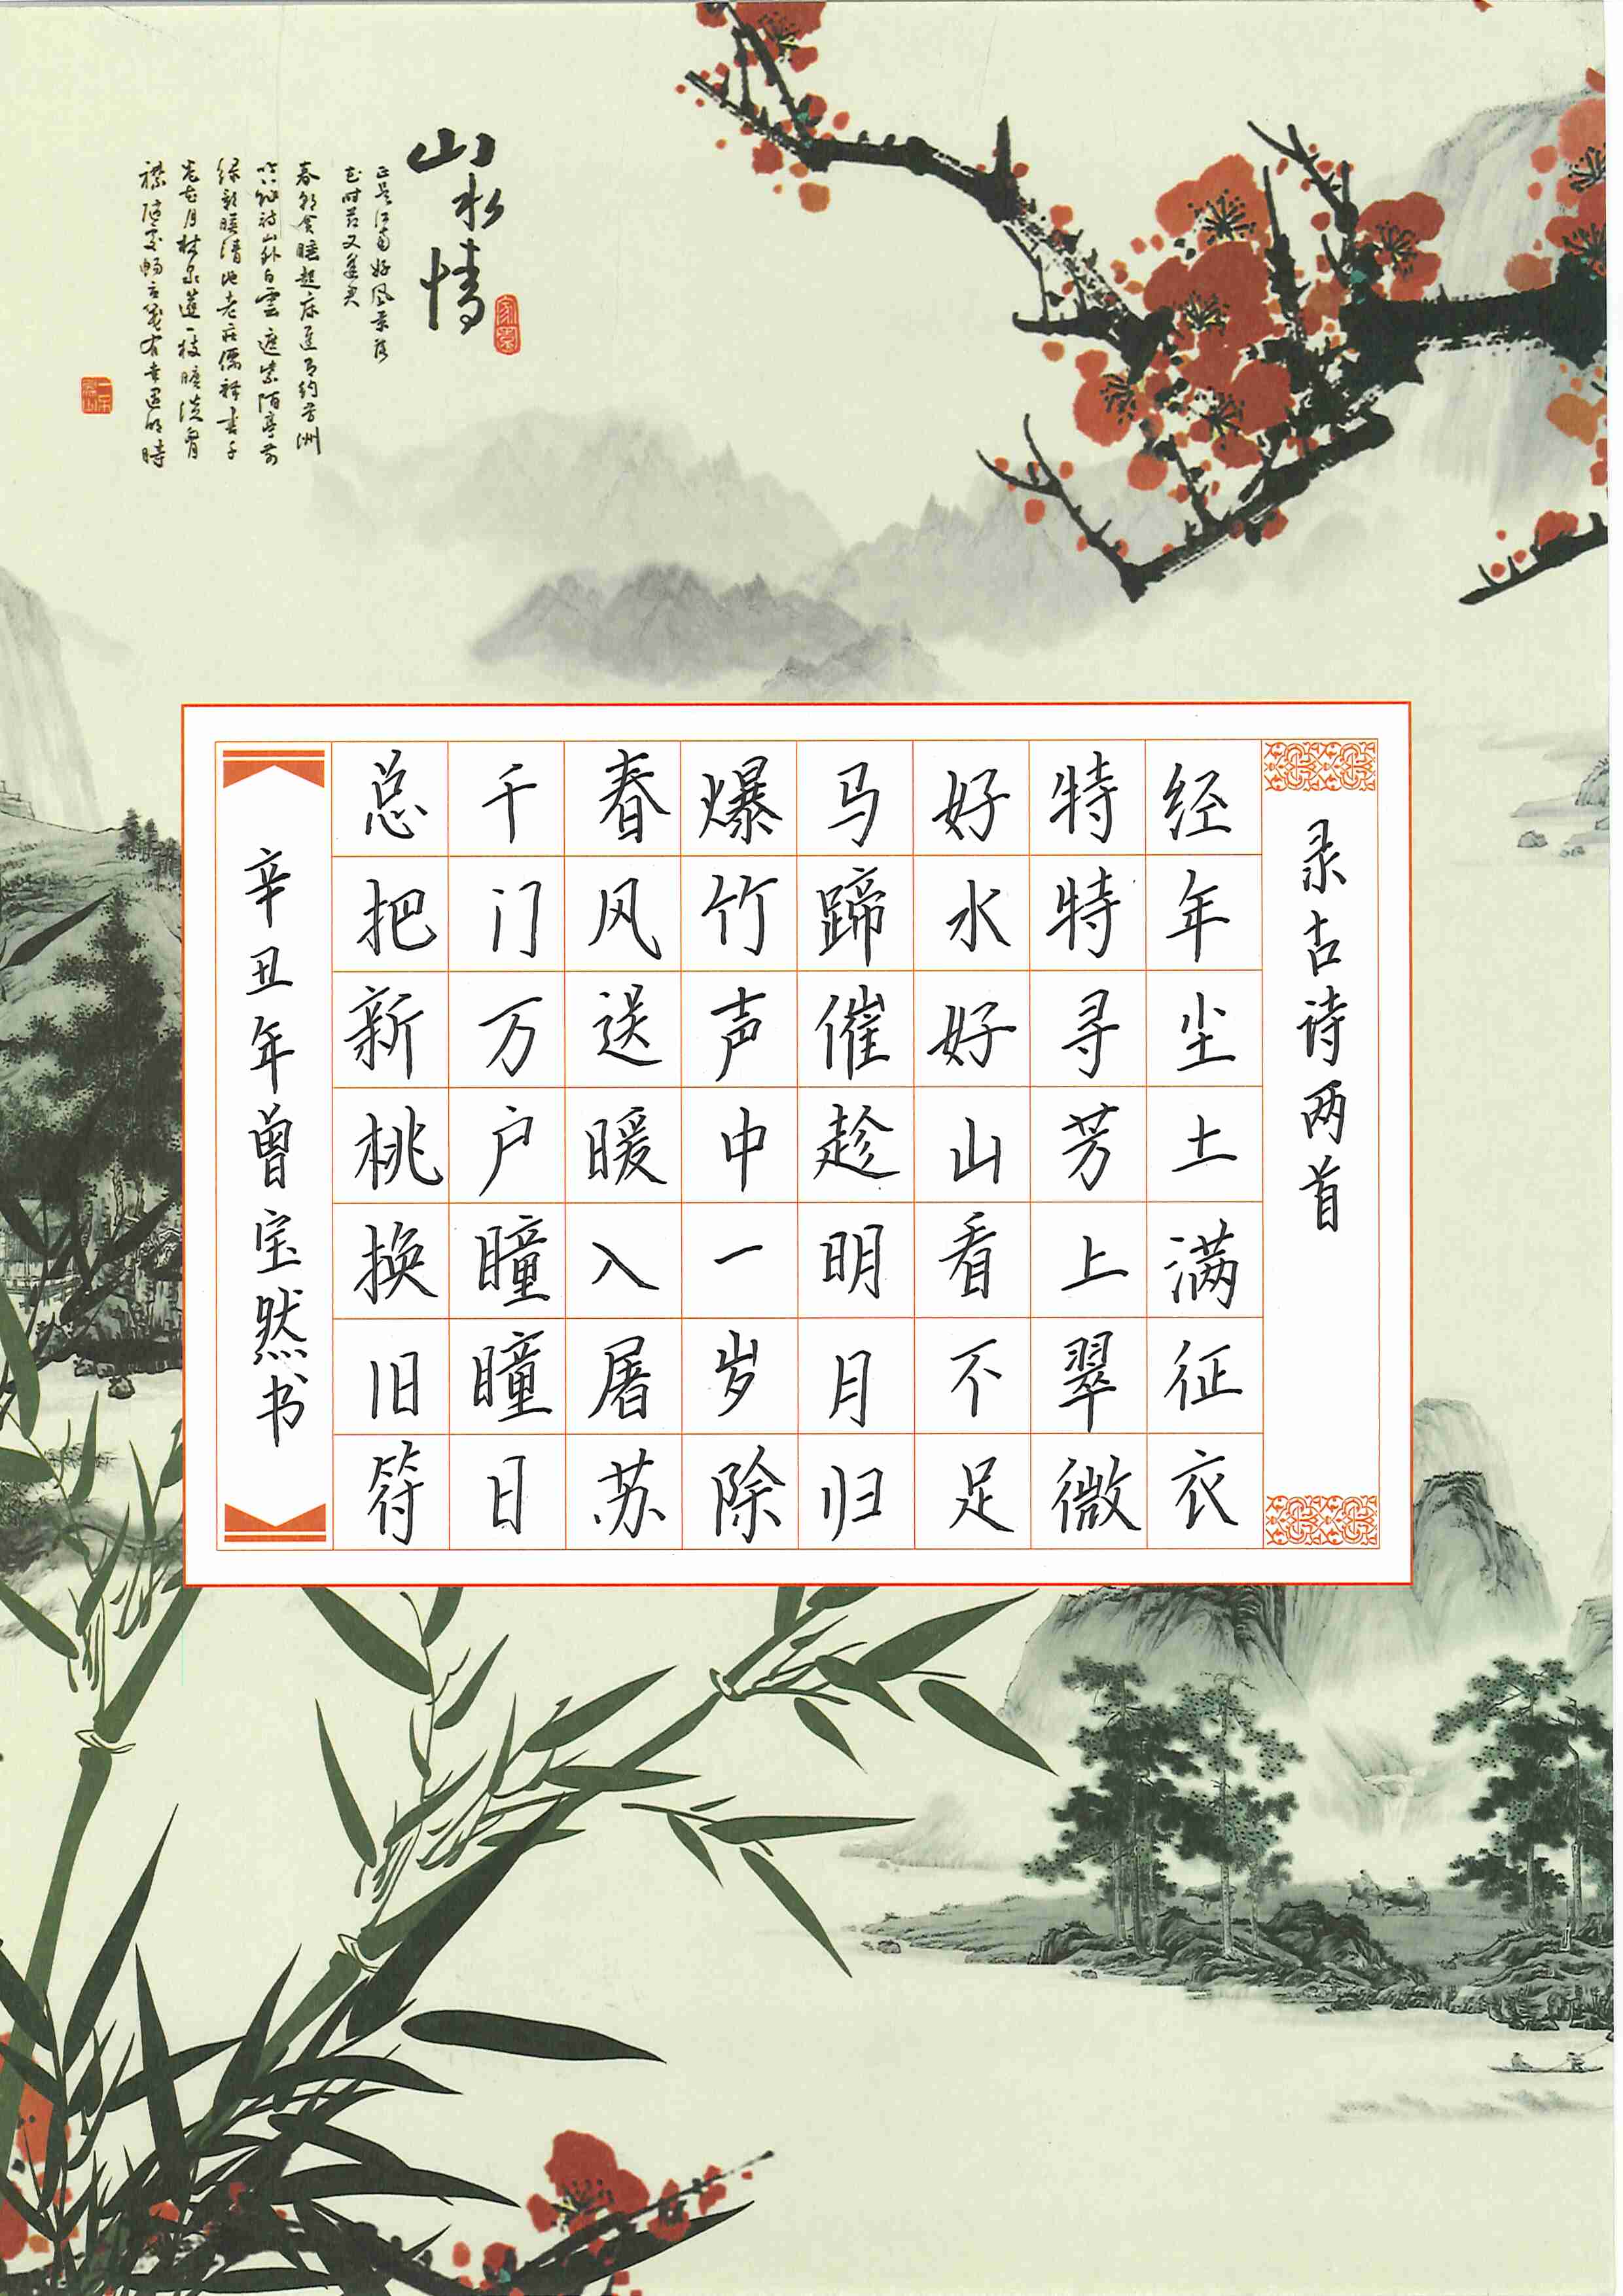 山水情
正是江南好风景落
花时节又逢君
录古诗两首
经年尘土满征衣
特特寻芳上翠微
好水好山看不足
马蹄催趁明月归
爆竹声中一岁除
春风送暖入屠苏
千门万户瞳瞳日
总把新桃换旧符
辛丑年曾宝然书